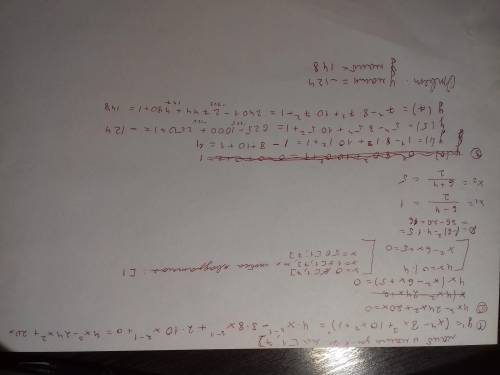 наиб и наим на [1;7]
① y' = (x⁴ - 8x³ + 10x² + 1)' = 4·x⁴⁻¹ - 3·8x³⁻¹ + 2·10x²⁻¹ + 0 = 4x³ - 24x² + 20x
② 4x³ - 24x² + 20x = 0
4x(x² - 6x + 5) = 0
4x = 0 |:4
x² - 6x + 5 = 0
x = 0 ∉ [1;7]
x = 1 ∈ [1;7], т.к. скобка квадратная - [1;
x = 5 ∈ [1;7]
D = (-6)² - 4·1·5 =
= 36 - 20 = 16
x₁ = (6-4)/2 = 1
x₂ = (6+4)/2 = 5
③
y(1) = 1⁴ - 8·1³ + 10·1² + 1 = 1 - 8 + 10 + 1 = 4
y(5) = 5⁴ - 8·5³ + 10·5² + 1 = 625 - 1000 + 250 + 1 = -124
y(7) = 7⁴ - 8·7³ + 10·7² + 1 = 2401 - 2744 + 490 + 1 = 148
Ответ: y наим = -124
y наиб = 148